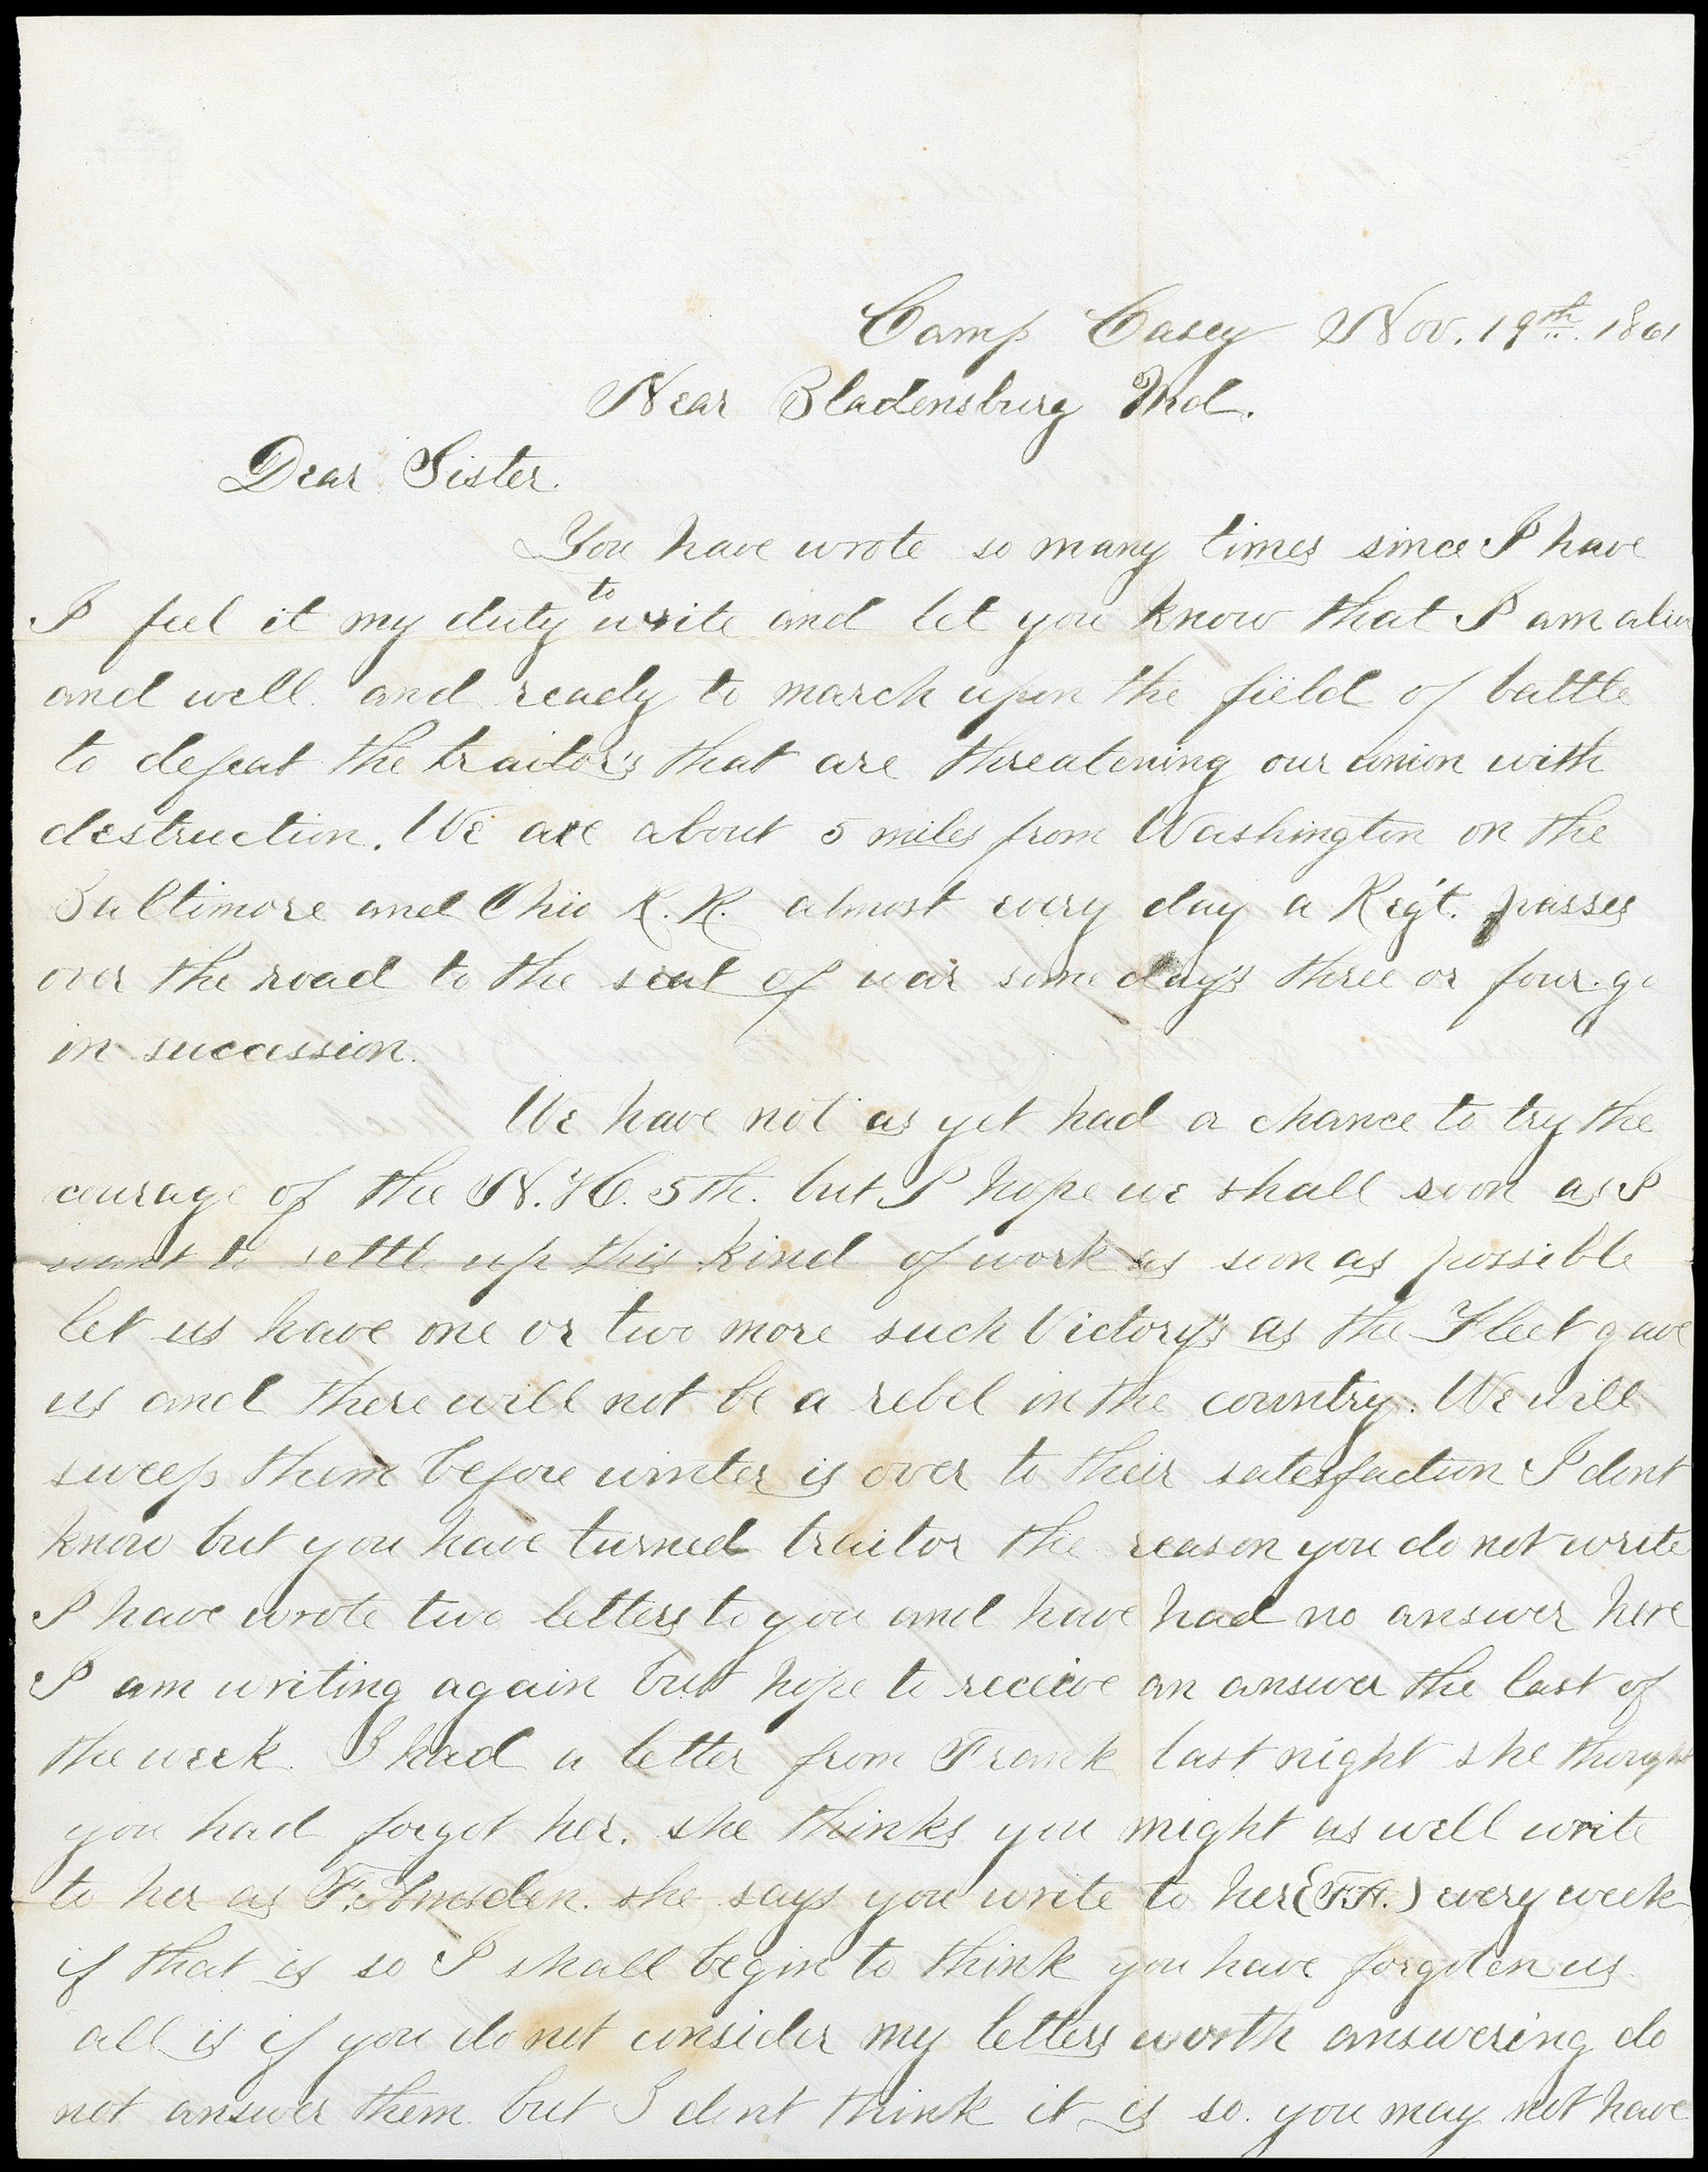 Camp Casey Nov. 19th. 1861
Near Bladensburg Md.
Dear Sister.
You have wrote so many times since I have
I feel it my duty to write and let you know that I am aliv
and well. and ready to march upon the field of battle
to defeat the traitor's that are threatening our union with
destruction. We are about 5 miles from Washington on the
Baltimore and Ohio R.R. almost every day a Reg't. passes
over the road to the seat of war some day's three or four go
in succession.
We have not as yet had a chance to try the
courage of the N.H. 5th. but I hope we shall soon as I
want to settle up this kind of work as soon as possible
let us have one or two more such Victory's as the Fleet gave
us and there will not be a rebel in the country. We will
sweep them before winter is over to their satesfaction I dont
know but you have turned traitor the reason you do not write
I have wrote two letters to you and have had no answer here
I am writing again but hope to receive an answer the last of
the week. I had a letter from Frank last night she thought
you had forgot her. she thinks you might as well write
to her as F. she says you write to her (F.A.) every week
if that is so I shall begin to think you have forgoten us
all is if you do not consider my letters worth answering do
not answer them but I dont think it is so. you may not have